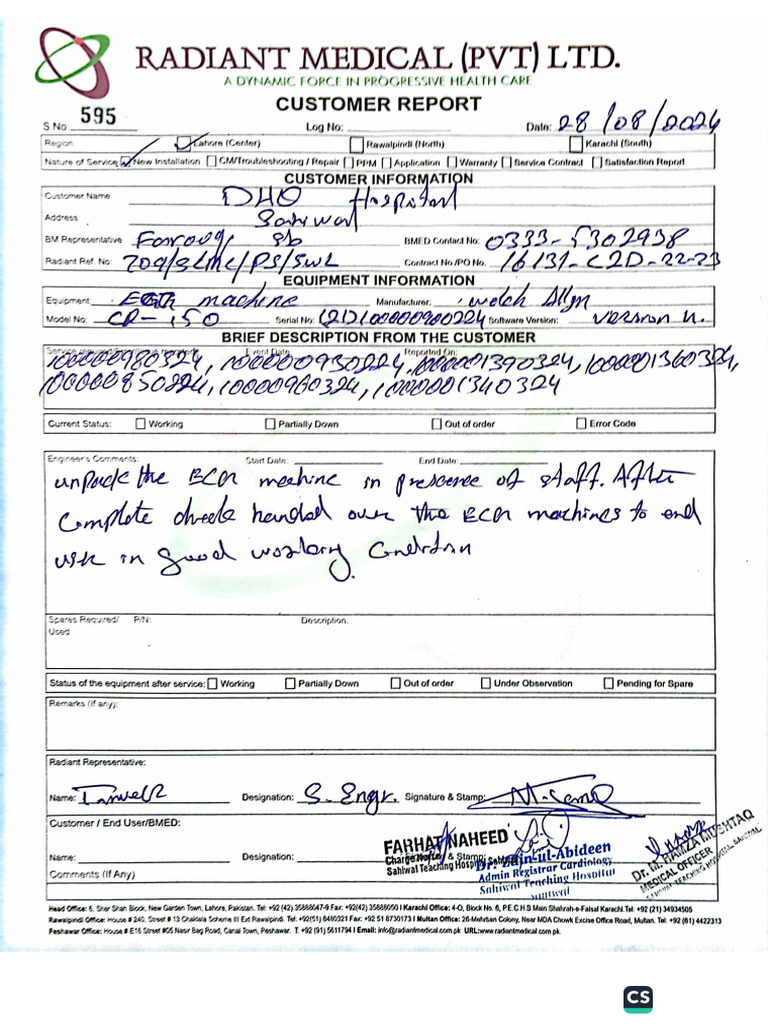 RADIANT MEDICAL (PVT) LTD.
A DYNAMIC FORCE IN PROGRESSIVE HEALTH CARE
CUSTOMER REPORT
S No 595 Log No: Date: 28/08/2024
Region Lahore (Center) Rawalpindi (North) Karachi (South)
Nature of Service New Installation CM/Troubleshooting / Repair PPM Application Warranty Service Contract Satisfaction Report
CUSTOMER INFORMATION
Customer Name DHQ Hospital
Address Sahiwal
BM Representative Farooq sb BMED Contact No: 0333-5302938
Radiant Ref. No: 709/SLMC/PS/SWL Contract No./PO No. 16131-C2D-22-23
EQUIPMENT INFORMATION
Equipment ECG machine Manufacturer: Welch Allyn
Model No: CP-150 Serial No: 100000900224 Software Version: Version
BRIEF DESCRIPTION FROM THE CUSTOMER
Event Date Reported On:
100000980324, 100000930224, 100001390324, 100001360324,
100000850224, 100000960324, 100001340324
Current Status: Working Partially Down Out of order Error Code
Engineer's Comments: Start Date: End Date:
unpack the ECG machine in presence of staff. After
complete check handed over the ECG machines to end
user in good working condition
Spares Required/ P/N: Description:
Used:
Status of the equipment after service: Working Partially Down Out of order Under Observation Pending for Spare
Remarks (If any):
Radiant Representative:
Name: Designation: S. Engr. Signature & Stamp:
Customer / End User/BMED:
FARHAT NAHEED
Charge Nurse
Sahiwal Teaching Hospital Sahiwal
Dr. Zain-ul-Abideen
Admin Registrar Cardiology
Sahiwal Teaching Hospital
Sahiwal
Dr. M. HAMZA MUSHTAQ
MEDICAL OFFICER
SAHIWAL TEACHING HOSPITAL, SAHIWAL
Name: Designation: & Stamp:
Comments (If Any)
Head Office: 6, Sher Shah Block, New Garden Town, Lahore, Pakistan. Tel: +92(42) 35888047-9 Fax: +92(42) 35888050 I Karachi Office: 4-O, Block No. 6, P.E.C.H.S Main Shahrah-e-Faisal Karachi.Tel: +92 (21) 34934505
Rawalpindi Office: House # 240, Street # 13 Chaklala Scheme III Ext Rawalpindi. Tel: +92(51) 8486321 Fax: +92 51 8730173 I Multan Office: 26-Mehrban Colony, Near MDA Chowk Excise Office Road, Multan. Tel: +92 (61) 4422313
Peshawar Office: House # E16 Street #05 Nasr Bag Road, Canal Town, Peshawar. T: +92 (91) 5611794 I Email: info@radiantmedical.com.pk URL:www.radiantmedical.com.pk.
CS